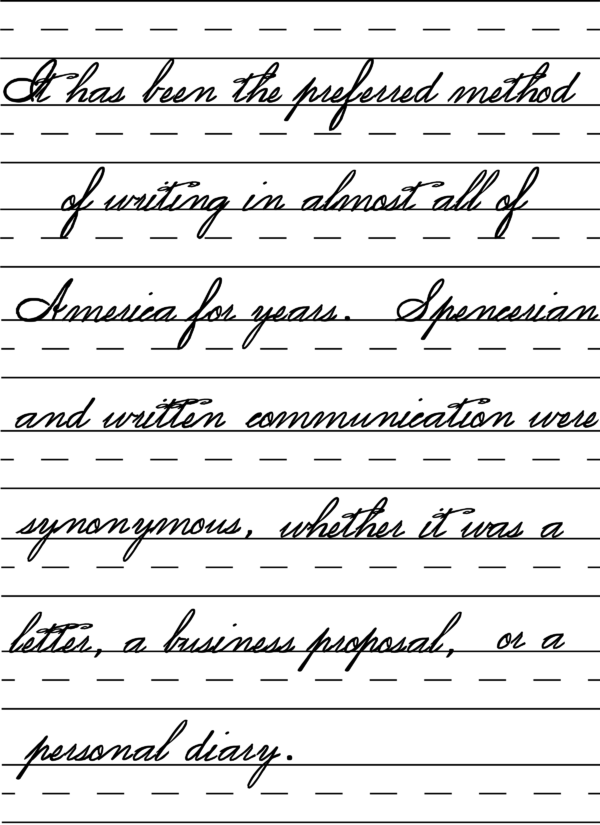 It has been the preferred method
of writing in almost all of
America for years. Spencerian
and written communication were
synonymous, whether it was a
letter, a business proposal, or a
personal diary.